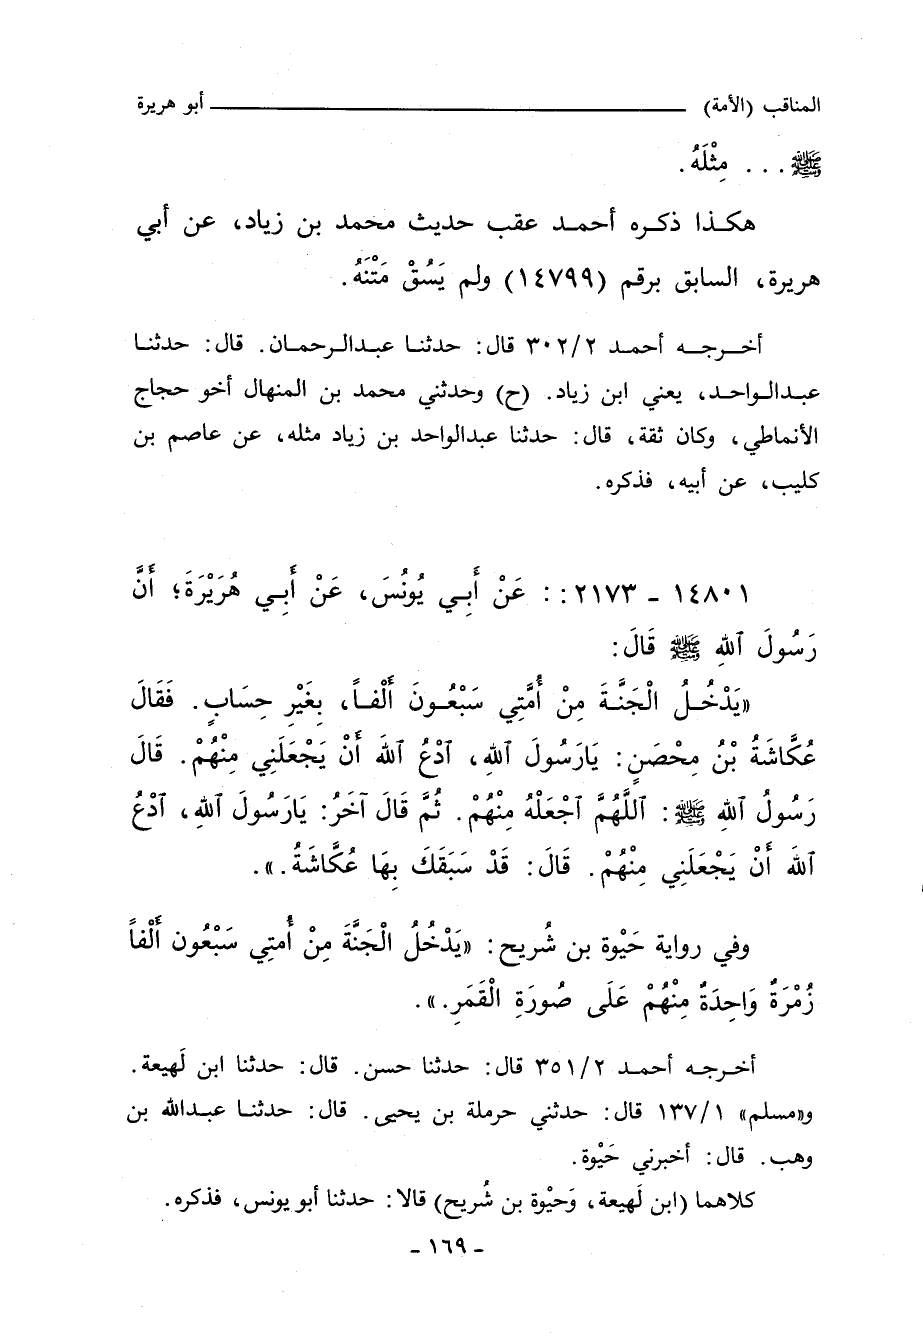 المناقب (الأمة) ــــــــــــــــــــــــــــــــــــــــ أبو هريرة
ﷺ . . . مِثْلَهُ.
هكذا ذكره أحمد عقب حديث محمد بن زياد، عن أبي
هريرة، السابق برقم (١٤٧٩٩) ولم يَسُقْ مَتْنَهُ.
أخرجه أحمد ٣٠٢/٢ قال: حدثنا عبدالرحمان. قال: حدثنا
عبدالواحد، يعني ابن زياد. (ح) وحدثني محمد بن المنهال أخو حجاج
الأنماطي، وكان ثقة، قال: حدثنا عبدالواحد بن زياد مثله، عن عاصم بن
كليب، عن أبيه، فذكره.
١٤٨٠١ - ٢١٧٣: : عَنْ أَبِي يُونُسَ، عَنْ أَبِي هُرَيْرَةَ؛ أَنَّ
رَسُولَ ٱللهِ ﷺ قَالَ:
«يَدْخُلُ الْجَنَّةَ مِنْ أُمَّتِي سَبْعُونَ أَلْفاً، بِغَيْرِ حِسَابٍ. فَقَالَ
عُكَّاشَةُ بْنُ مِحْصَنٍ: يَارَسُولَ ٱللهِ، ٱدْعُ ٱللهَ أَنْ يَجْعَلَنِي مِنْهُمْ. قَالَ
رَسُولُ ٱللهِ ﷺ: ٱللَّهُمَّ ٱجْعَلْهُ مِنْهُمْ. ثُمَّ قَالَ آخَرُ: يَارَسُولَ ٱللهِ، ٱدْعُ
ٱللهَ أَنْ يَجْعَلَنِي مِنْهُمْ. قَالَ: قَدْ سَبَقَكَ بِهَا عُكَّاشَةُ.».
وفي رواية حَيْوة بن شُريح: «يَدْخُلُ الْجَنَّةَ مِنْ أُمتِي سَبْعُون أَلْفاً
زُمْرَةٌ وَاحِدَةٌ مِنْهُمْ عَلَى صُورَةِ الْقَمَرِ.».
أخرجه أحمد ٣٥١/٢ قال: حدثنا حسن. قال: حدثنا ابن لَهيعة.
و«مسلم» ١٣٧/١ قال: حدثني حرملة بن يحيى. قال: حدثنا عبدالله بن
وهب. قال: أخبرني حَيْوة.
كلاهما (ابن لَهيعة، وَحيْوة بن شُريح) قالا: حدثنا أبو يونس، فذكره.
- ١٦٩ -